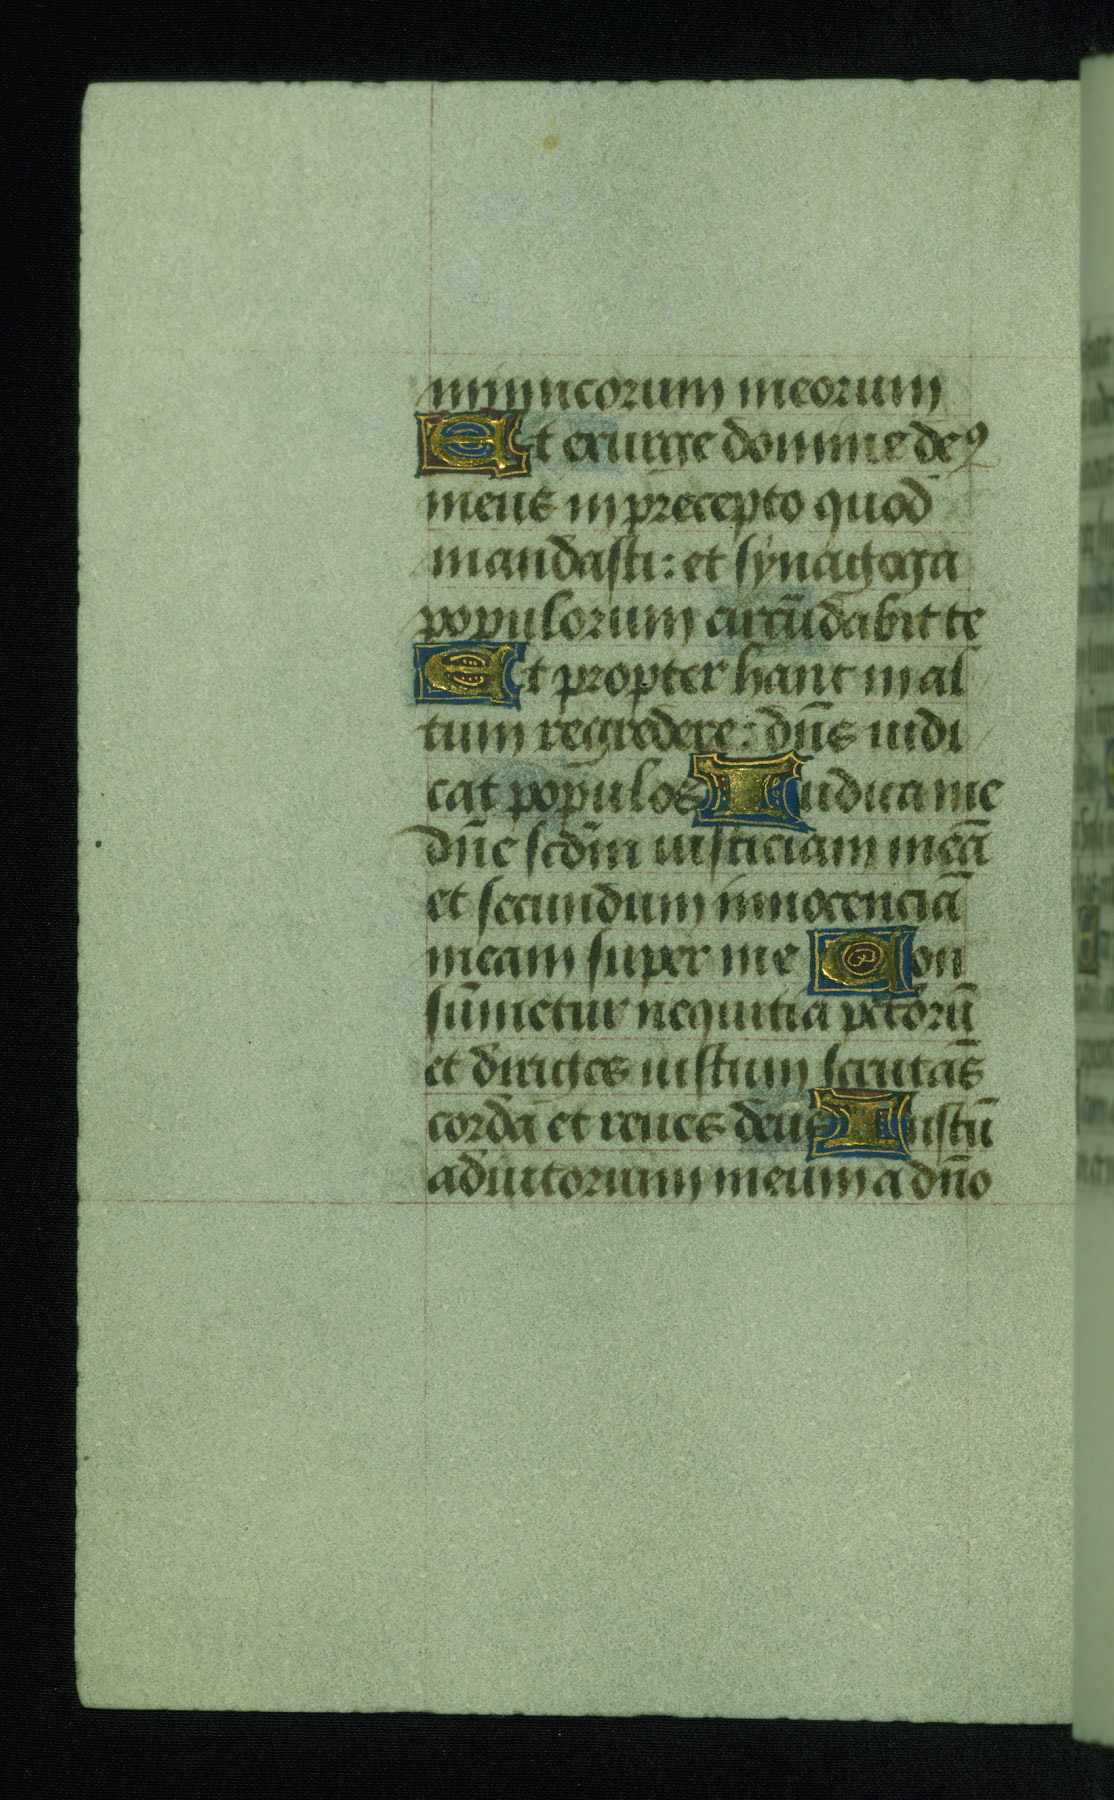 inimicorum meorum
Et exurge domine deꝰ
meus in precepto quod
mandasti: et synagoga
populorum circūdabit te
Et propter hanc in al
tum regredere: dn̄s iudi
cat populos Iudica me
dn̄e scdm̄ iusticiam meā
et secundum innocenciā
meam super me Con
sūmetur nequitia pctōrū
et diriges iustum scrutās
corda et renes deus Iustū
adiutorium meum a dn̄o